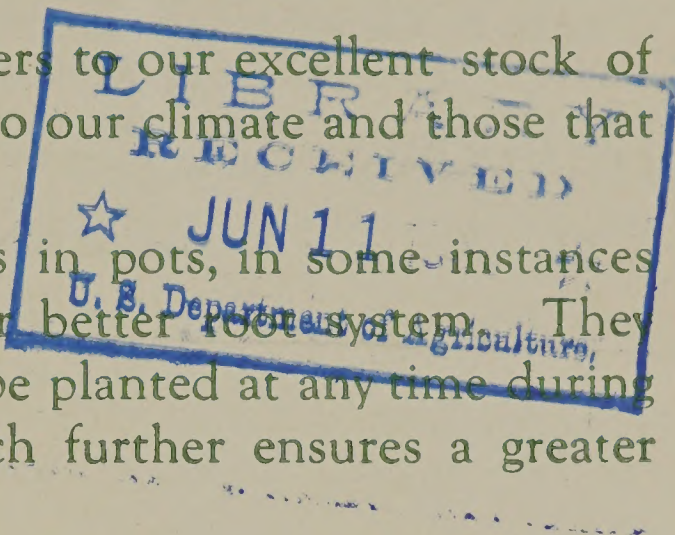 ers to our excellent stock of
o our climate and those that
s in pots, in some instances
r better root system. They
be planted at any time during
ch further ensures a greater
LIBRARY
RECEIVED
☆ JUN 11
U. S. Department of Agriculture,